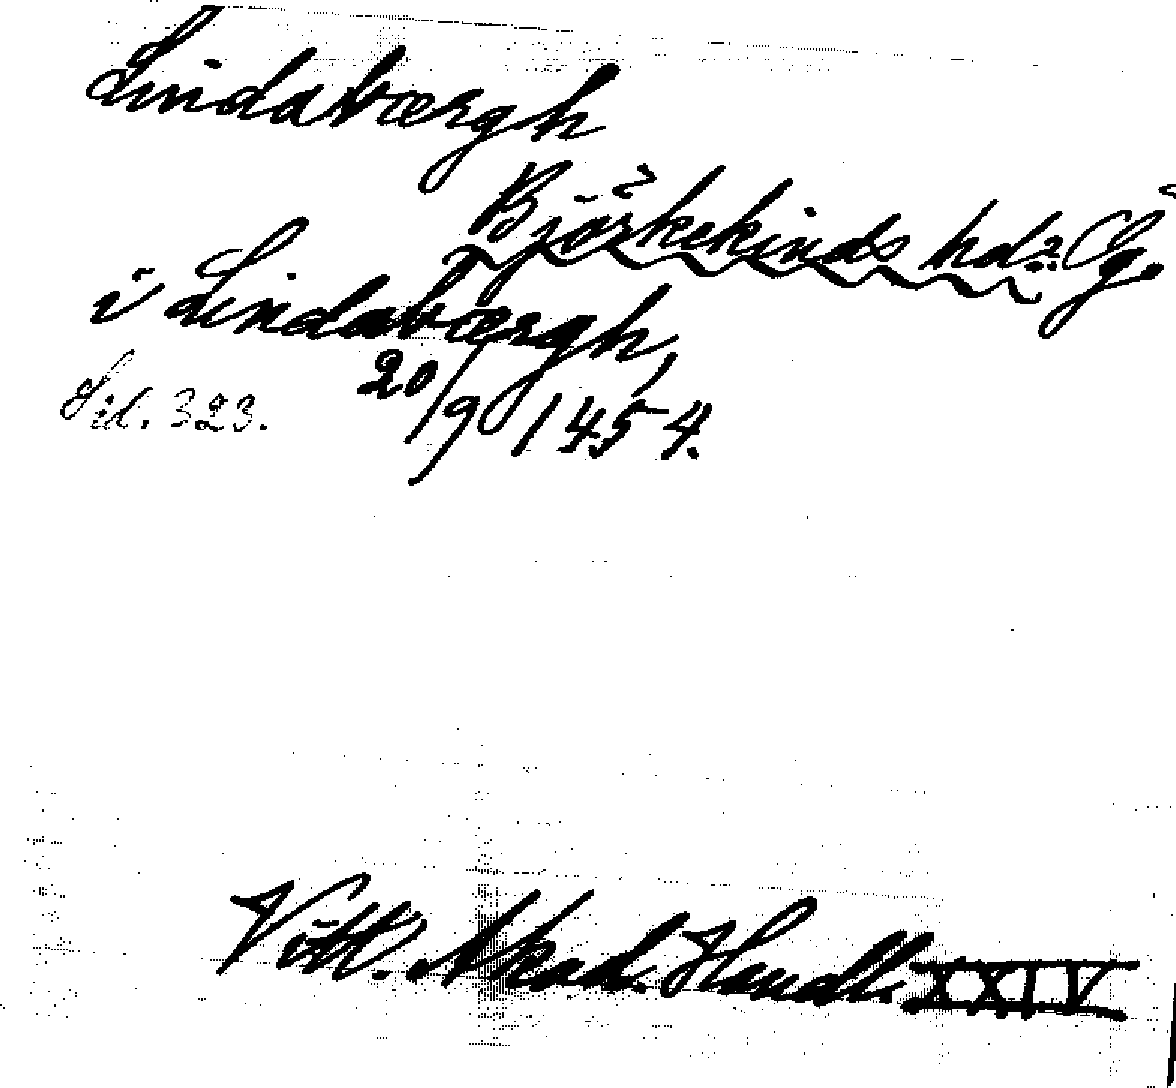 Lindabærgh
Björkekinds hd? Ög.
i Lindabærgh,
Sid. 323. 20/9 1454.
Vitt. Akad. Handl. XXIV